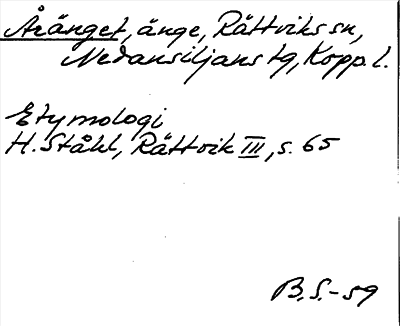 Åränget, änge, Rättviks sn,
Nedansiljans tg, Kopp. l.
Etymologi
H. Ståhl, Rättvik III, s. 65
B.S.-59